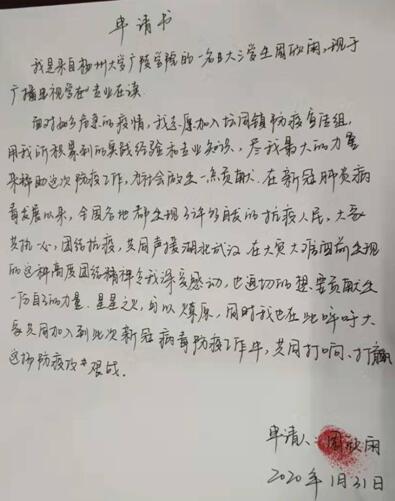 申请书
我是来自扬州大学广陵学院的一名大三学生周欣雨,现于
广播电视学在专业在读
面对如此严重的疫情,我志愿加入坛同镇防疫宣传组,
用我所积累到的实践经验和专业知识,尽我最大的力量
来帮助这次防疫工作,为社会做出一点贡献。在新冠肺炎病
毒发展以来,全国各地都出现了许多自发的抗疫人民,大家
共抗一心,团结抗疫,共同声援湖北武汉,在大灾大难面前出现
的这种高度团结精神令我深受感动,也迫切的想要贡献出
一份自己的力量.星星之火,可以燎原,同时我也在此呼吁大
家共同加入到此次新冠病毒防疫工作中,共同打响、打赢
这场防疫攻坚战.
申请人:周欣雨
2020年1月31日